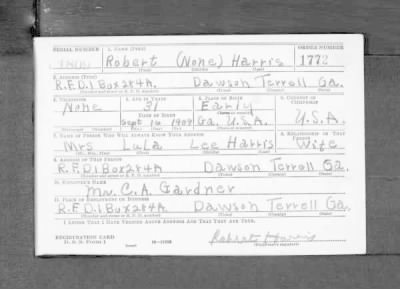 SERIAL NUMBER 1. NAME (Print) ORDER NUMBER
Robert (None) Harris 1772
(First) (Middle) (Last)
2. ADDRESS (Print)
R.F.D.1 Box 284A Dawson Terrell Ga.
(Number and street or R. F. D. number) (Town) (County) (State)
3. TELEPHONE 4. AGE IN YEARS 5. PLACE OF BIRTH 6. COUNTRY OF CITIZENSHIP
None 31 Early
DATE OF BIRTH
Sept 16 1909 Ga. U.S.A. U.S.A.
7. NAME OF PERSON WHO WILL ALWAYS KNOW YOUR ADDRESS 8. RELATIONSHIP OF THAT PERSON
Mrs Lula Lee Harris Wife
(Mr., Mrs., Miss) (First) (Middle) (Last)
9. ADDRESS OF THAT PERSON
R.F.D.1 Box 284A Dawson Terrell Ga.
(Number and street or R. F. D. number) (Town) (County) (State)
10. EMPLOYER'S NAME
Mr. C.A. Gardner
11. PLACE OF EMPLOYMENT OR BUSINESS
R.F.D.1 Box 284A Dawson Terrell Ga.
(Number and street or R. F. D. number) (Town) (County) (State)
I AFFIRM THAT I HAVE VERIFIED ABOVE ANSWERS AND THAT THEY ARE TRUE.
REGISTRATION CARD
D. S. S. FORM 1
Robert Harris
(Registrant's signature)